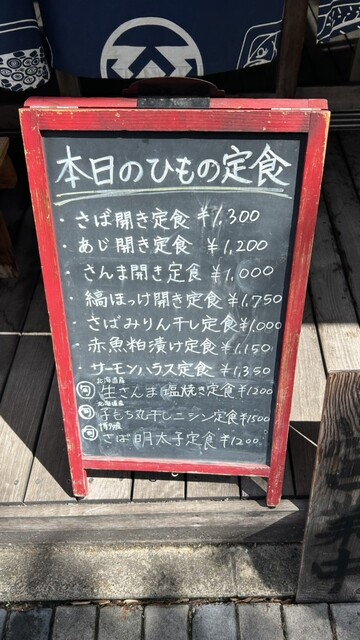 本日のひもの定食
・さば開き定食 ¥1,300
・あじ開き定食 ¥1,200
・さんま開き定食 ¥1,000
・縞ほっけ開き定食 ¥1,750
・さばみりん干し定食 ¥1,000
・赤魚粕漬け定食 ¥1,150
・サーモンハラス定食 ¥1,350
北海道産
旬 生さんま塩焼き定食 ¥1200
北海道産
旬 子もち丸干しニシン定食 ¥1500
旬 さば明太子定食 ¥1200